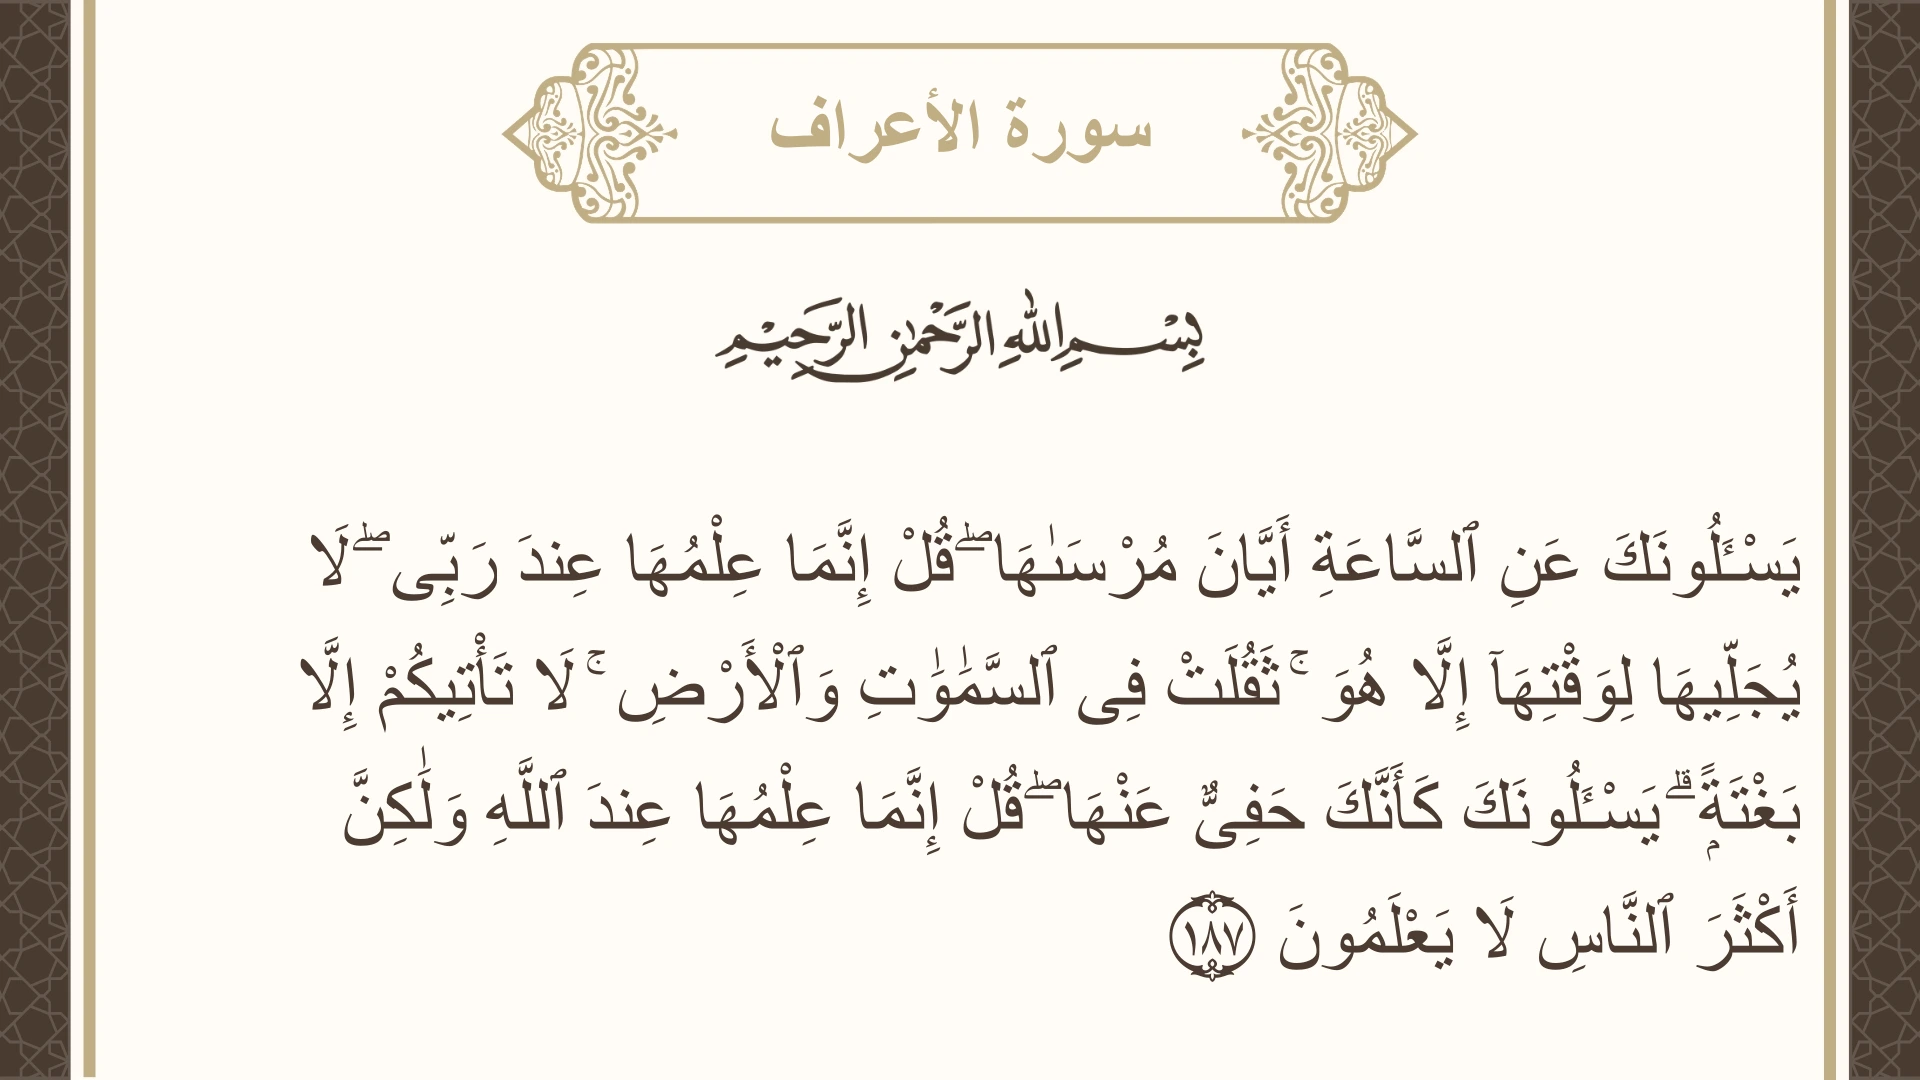 سورة الأعراف
بِسْمِ اللهِ الرَّحْمٰنِ الرَّحِيْمِ
يَسْـَٔلُونَكَ عَنِ ٱلسَّاعَةِ أَيَّانَ مُرْسَىٰهَا ۖ قُلْ إِنَّمَا عِلْمُهَا عِندَ رَبِّى ۖ لَا
يُجَلِّيهَا لِوَقْتِهَآ إِلَّا هُوَ ۚ ثَقُلَتْ فِى ٱلسَّمَٰوَٰتِ وَٱلْأَرْضِ ۚ لَا تَأْتِيكُمْ إِلَّا
بَغْتَةًۭ ۗ يَسْـَٔلُونَكَ كَأَنَّكَ حَفِىٌّ عَنْهَا ۖ قُلْ إِنَّمَا عِلْمُهَا عِندَ ٱللَّهِ وَلَٰكِنَّ
أَكْثَرَ ٱلنَّاسِ لَا يَعْلَمُونَ ١٨٧